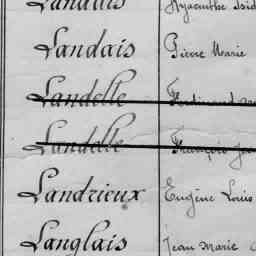 Landais Hyacinthe
Landais Pierre Marie
Landelle Ferdinand
Landelle François
Landrieux Eugène Louis
Langlais Jean Marie